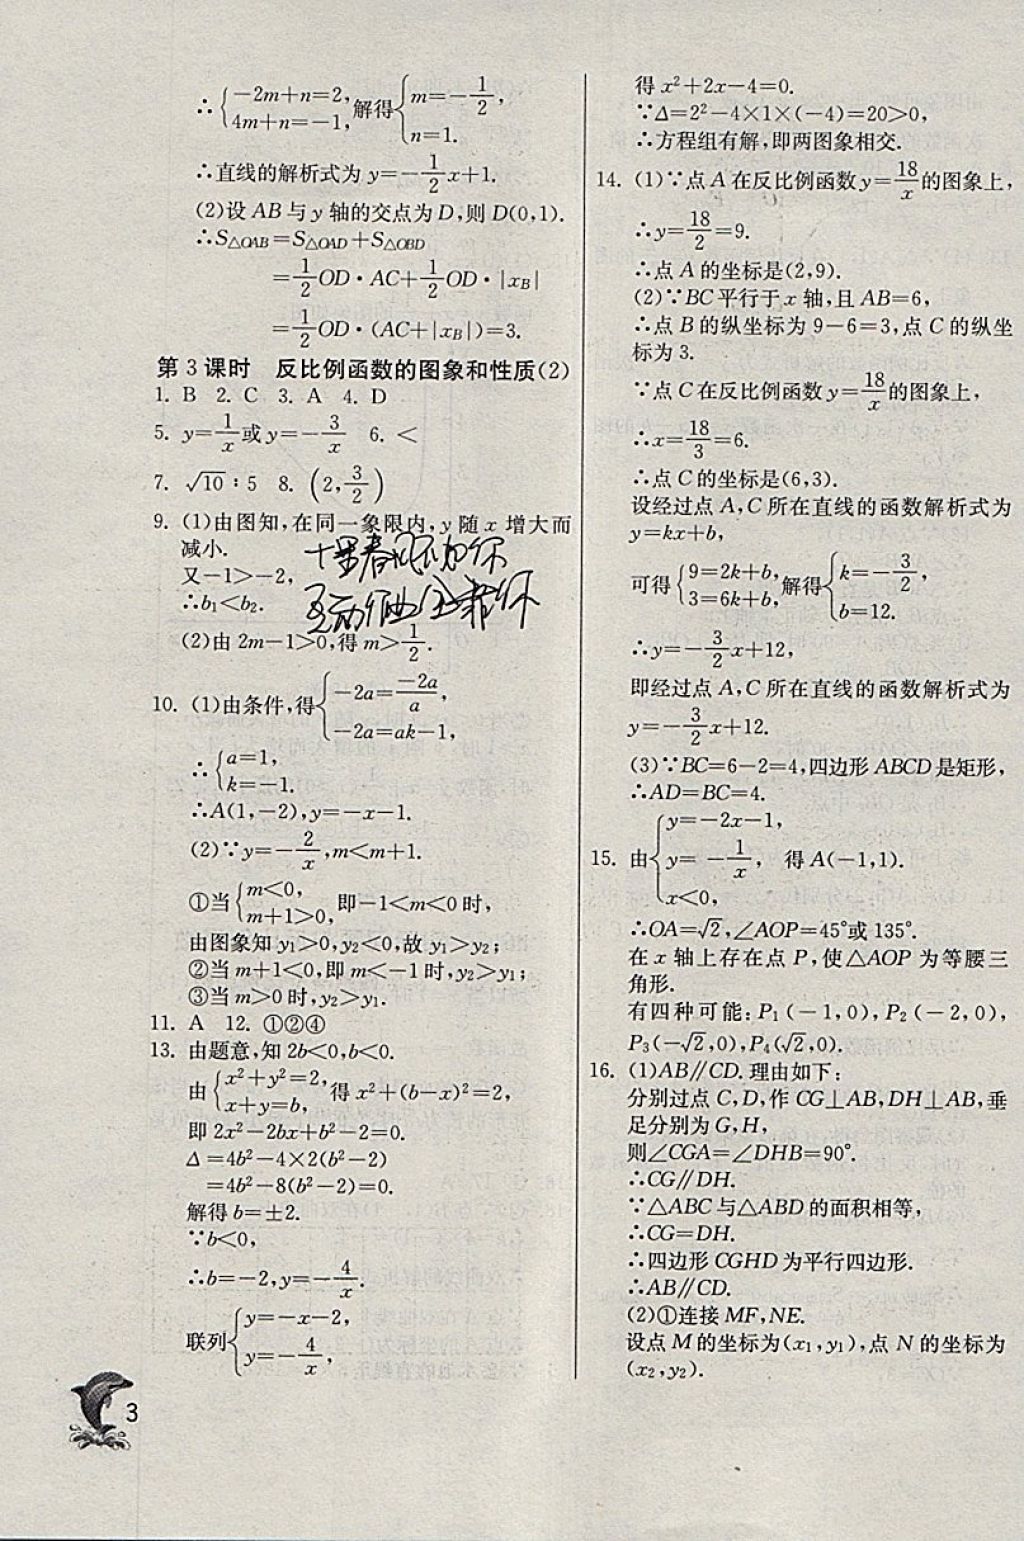 ∴{−2m+n=2, 4m+n=−1, 解得{m=−1/2, n=1.
∴直线的解析式为 y=−1/2x+1.
(2)设 AB 与 y 轴的交点为 D,则 D(0,1).
∴S△OAB=S△OAD+S△OBD
=1/2OD·AC+1/2OD·|xB|
=1/2OD·(AC+|xB|)=3.
第 3 课时 反比例函数的图象和性质(2)
1. B 2. C 3. A 4. D
5. y=1/x或 y=−3/x 6. <
7. √10∶5 8. (2,3/2)
9. (1)由图知,在同一象限内,y 随 x 增大而
减小.
又−1>−2,
∴b1<b2.
(2)由 2m−1>0,得 m>1/2.
10. (1)由条件,得{−2a=−2a/a, −2a=ak−1,
∴{a=1, k=−1.
∴A(1,−2),y=−x−1.
(2)∵y=−2/x,m<m+1.
①当{m<0, m+1>0, 即−1<m<0 时,
由图象知 y1>0,y2<0,故 y1>y2;
②当 m+1<0,即 m<−1 时,y2>y1;
③当 m>0 时,y2>y1.
11. A 12. ①②④
13. 由题意,知 2b<0,b<0.
由{x²+y²=2, x+y=b, 得 x²+(b−x)²=2,
即 2x²−2bx+b²−2=0.
Δ=4b²−4×2(b²−2)
=4b²−8(b²−2)=0.
解得 b=±2.
∵b<0,
∴b=−2,y=−4/x.
联列{y=−x−2, y=−4/x,
3
得 x²+2x−4=0.
∵Δ=2²−4×1×(−4)=20>0,
∴方程组有解,即两图象相交.
14. (1)∵点 A 在反比例函数 y=18/x的图象上,
∴y=18/2=9.
∴点 A 的坐标是(2,9).
(2)∵BC 平行于 x 轴,且 AB=6,
∴点 B 的纵坐标为 9−6=3,点 C 的纵坐
标为 3.
∵点 C 在反比例函数 y=18/x的图象上,
∴x=18/3=6.
∴点 C 的坐标是(6,3).
设经过点 A,C 所在直线的函数解析式为
y=kx+b,
可得{9=2k+b, 3=6k+b, 解得{k=−3/2, b=12.
∴y=−3/2x+12,
即经过点 A,C 所在直线的函数解析式为
y=−3/2x+12.
(3)∵BC=6−2=4,四边形 ABCD 是矩形,
∴AD=BC=4.
15. 由{y=−2x−1, y=−1/x, x<0, 得 A(−1,1).
∴OA=√2,∠AOP=45°或 135°.
在 x 轴上存在点 P,使△AOP 为等腰三
角形.
有四种可能:P1(−1,0),P2(−2,0),
P3(−√2,0),P4(√2,0).
16. (1)AB∥CD.理由如下:
分别过点 C,D,作 CG⊥AB,DH⊥AB,垂
足分别为 G,H,
则∠CGA=∠DHB=90°.
∴CG∥DH.
∵△ABC 与△ABD 的面积相等,
∴CG=DH.
∴四边形 CGHD 为平行四边形.
∴AB∥CD.
(2)①连接 MF,NE.
设点 M 的坐标为(x1,y1),点 N 的坐标为
(x2,y2).